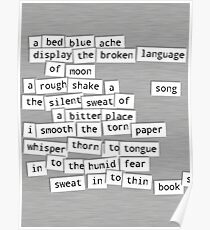 a bed blue ache
display the broken language
of moon
a rough shake a song
the silent sweat of
a bitter place
i smooth the torn paper
whisper thorn to tongue
in to the humid fear
sweat in to thin book s